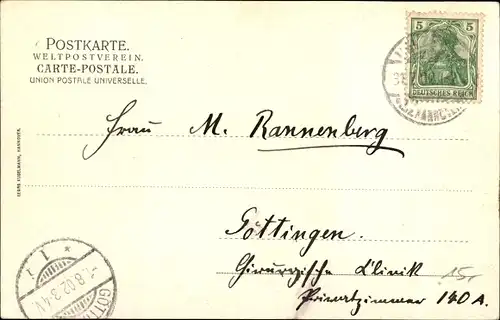 POSTKARTE.
WELTPOSTVEREIN.
CARTE-POSTALE.
UNION POSTALE UNIVERSELLE.
5 5
DEUTSCHES REICH
Frau M. Rannenberg
Göttingen.
Chirurgische Klinik
Privatzimmer 140 A.
15,-
1. 8. 02. 3-4 V
GÖTTI